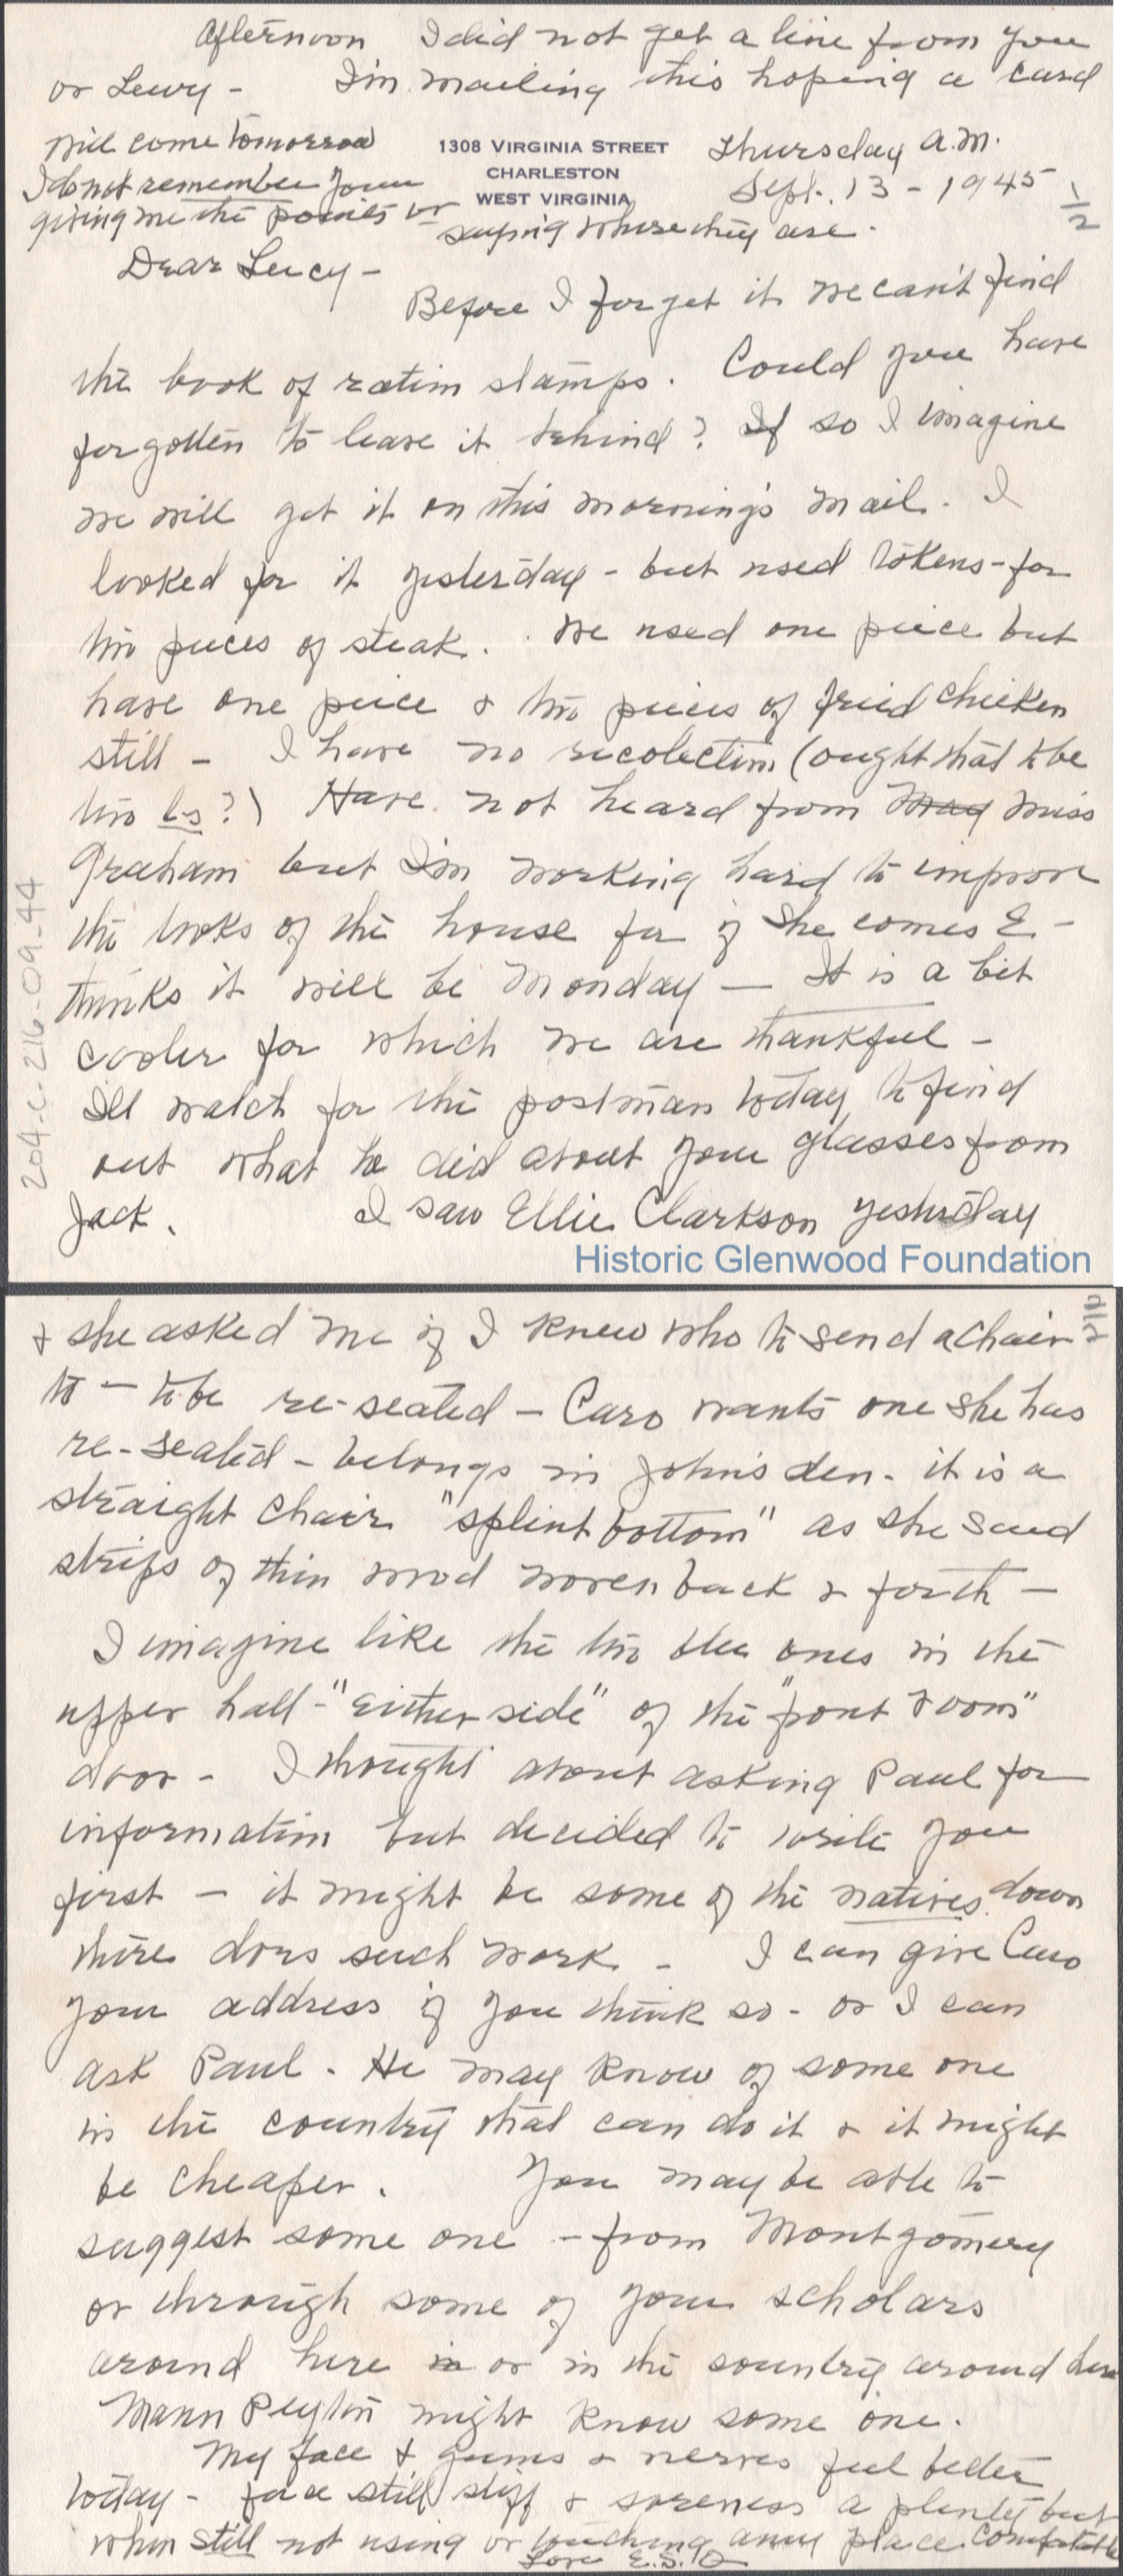 Afternoon I did not get a line from you
or Lewy - I'm mailing this hoping a card
will come tomorrow
I do not remember your
giving me the points or
saying where they are.
1308 VIRGINIA STREET
CHARLESTON
WEST VIRGINIA
Thursday A.M.
Sept. 13 - 1945
1/2
Dear Lucy -
Before I forget it we can't find
the book of ration stamps. Could you have
forgotten to leave it behind? If so I imagine
we will get it on this morning's mail. I
looked for it yesterday - but used tokens - for
two pieces of steak. We used one piece but
have one piece & two pieces of fried chicken
still - I have no recolection (ought that to be
two ls?) Have not heard from May Miss
Graham but I'm working hard to improve
the looks of the house for if she comes E. -
thinks it will be Monday - It is a bit
cooler for which we are thankful -
I'll watch for the postman today to find
out what to did about your glasses from
Jack. I saw Ellie Clarkson yesterday
204-C-216-09-44
Historic Glenwood Foundation
& she asked me if I knew who to send a chair
to - to be re-seated - Caro wants one she has
re-seated - belongs in John's den - it is a
straight chair "splint bottom" as she said
strips of thin wood woven back & forth -
I imagine like the two ones in the
upper hall - "either side" of the "front room"
door - I thought about asking Paul for
information but decided to write you
first - it might be some of the natives down
there does such work - I can give Caro
your address if you think so - or I can
ask Paul. He may know of some one
in the country that can do it & it might
be cheaper. You may be able to
suggest some one - from Montgomery
or through some of your scholars
around here in or in the country around here
Mann Peyton might know some one.
My face & gums & nerves feel better
today - face still stiff & soreness a plenty but
when still not using or touching any place comfortable
Love E.S.Q